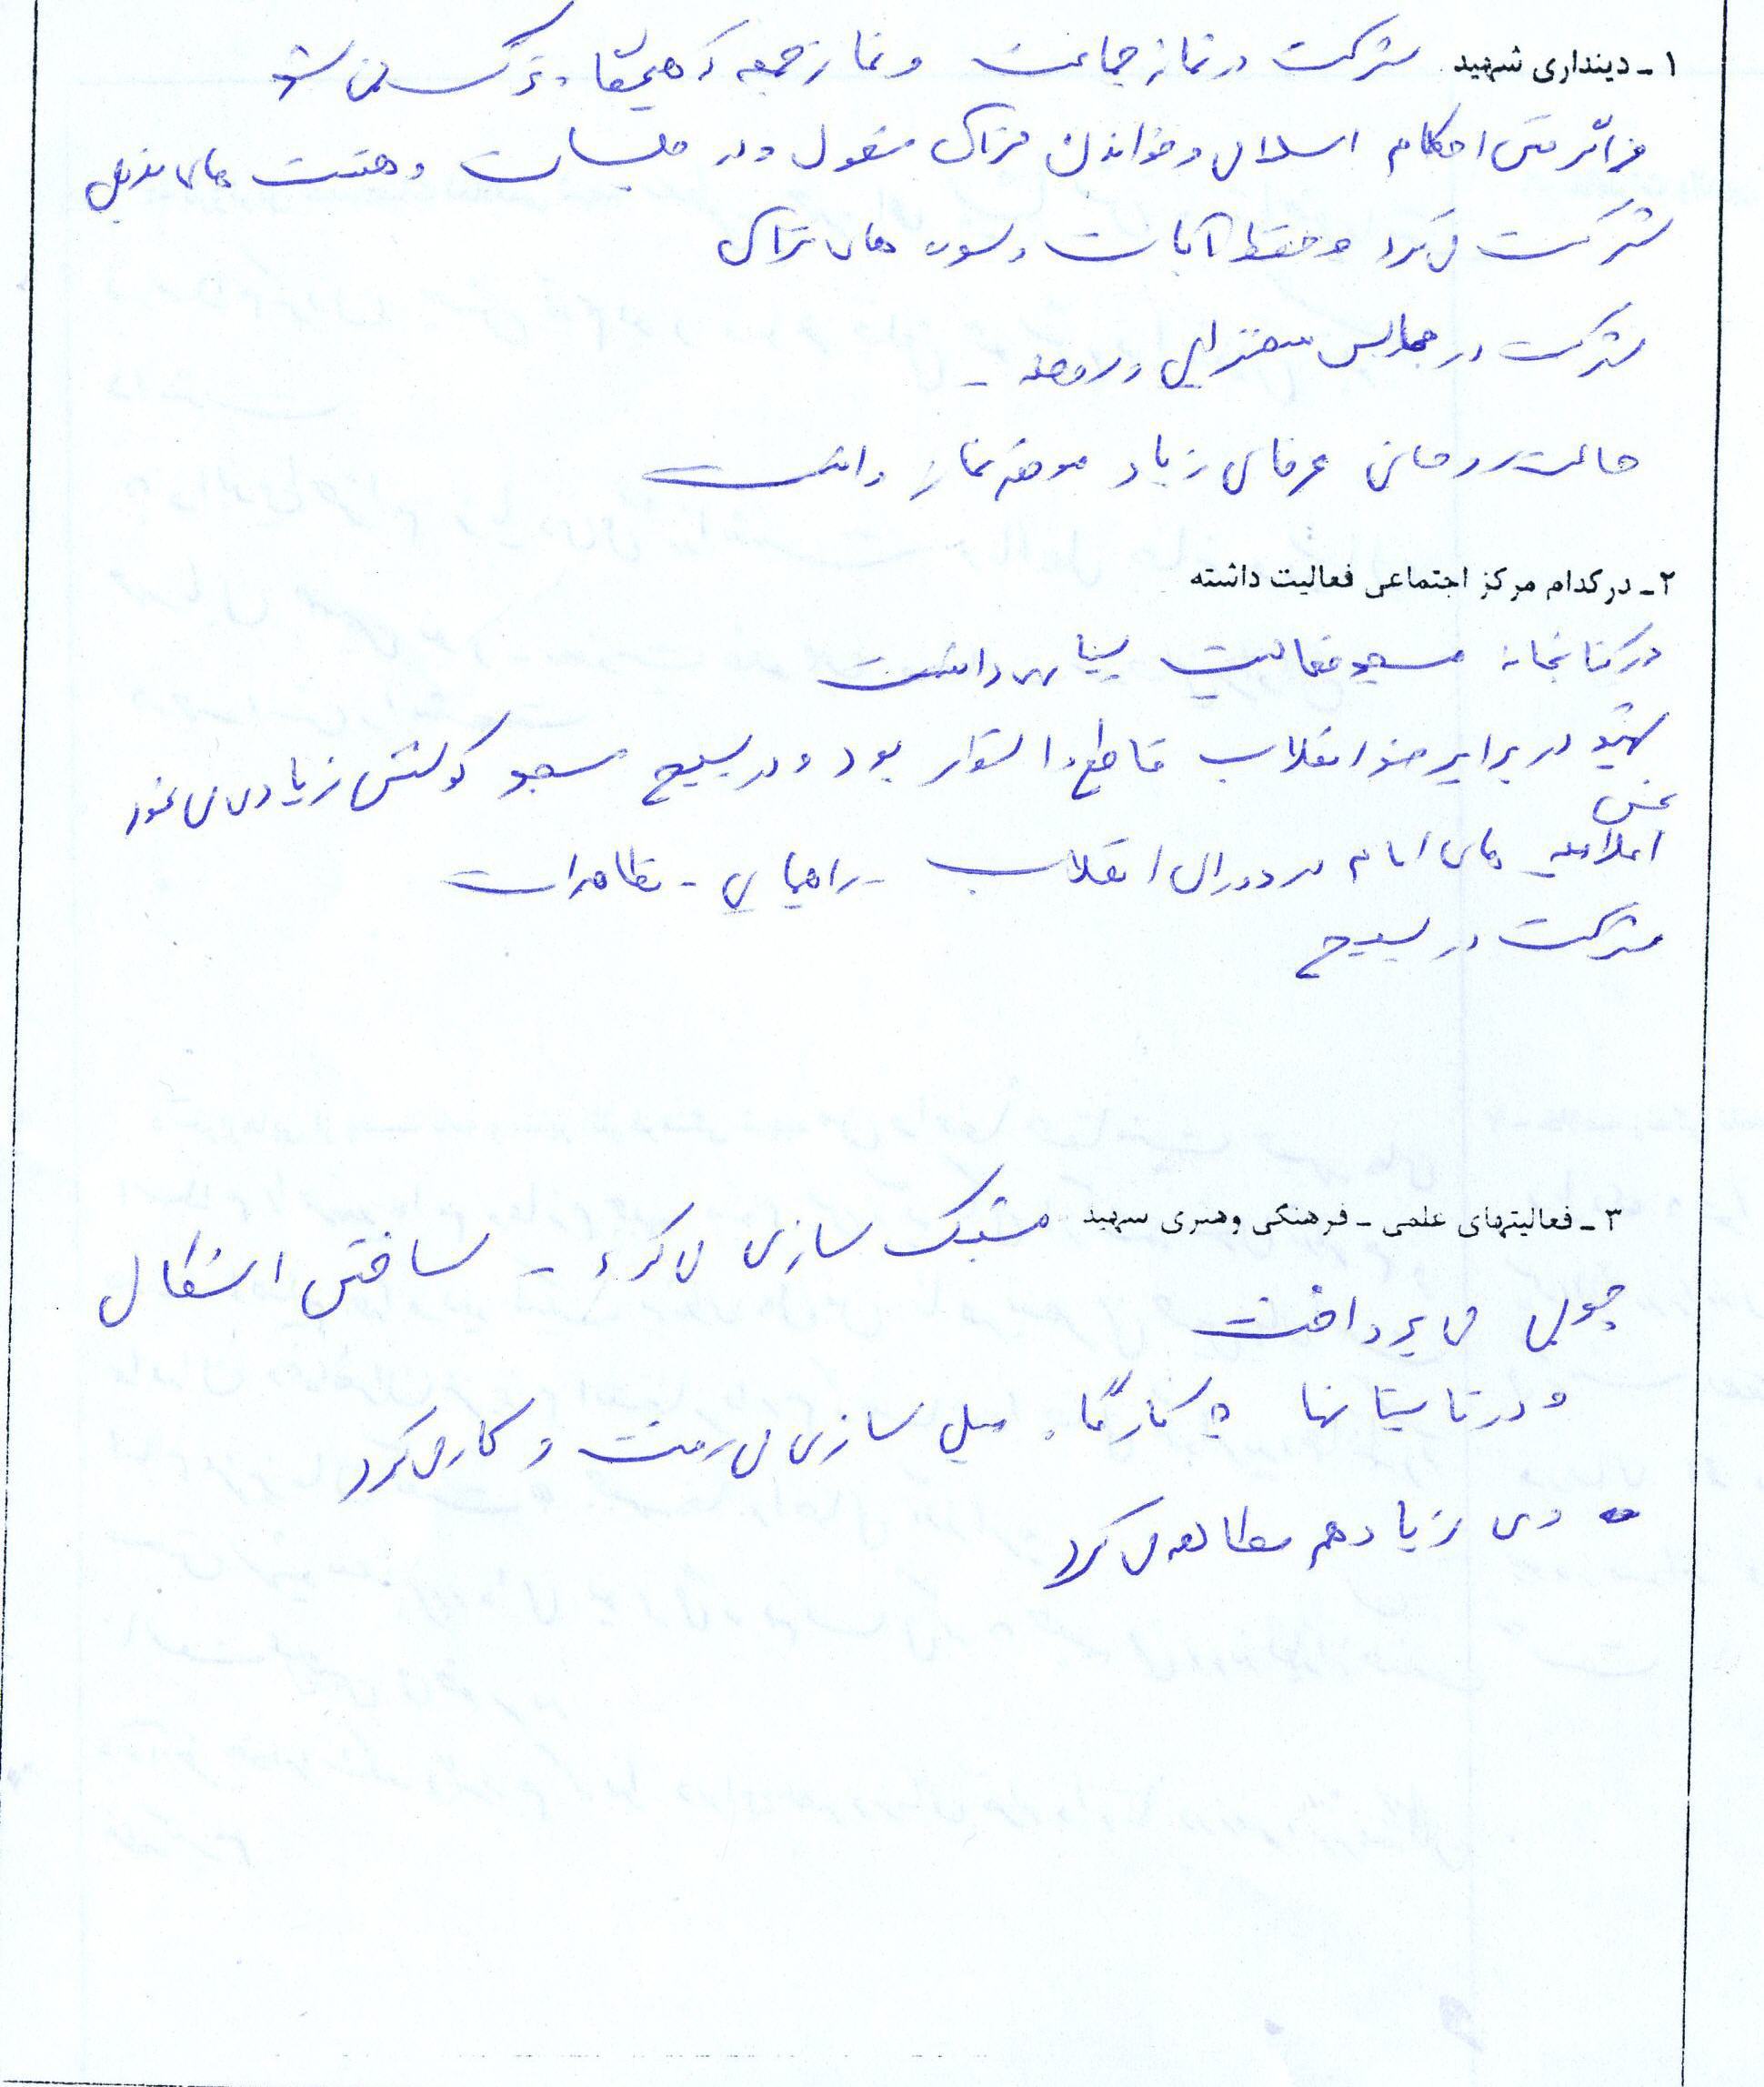 ۱ـ دینداری شهید شرکت در نماز جماعت و نماز جمعه که هیچگاه ترک نمی شد
فراگرفتن احکام اسلامی و خواندن قرآن مشغول و در جلسات و هیئت های مذهبی
شرکت می کرد و حفظ آیات و سوره های قرآن
شرکت در مجالس سخنرانی و روضه ـ
حالت روحانی عرفانی زیاد موقع نماز داشت
۲ـ در کدام مرکز اجتماعی فعالیت داشته
در کتابخانه مسجد فعالیت بسیاری داشت
شهید در برابر ضد انقلاب قاطع و استوار بود و در بسیج مسجد کوشش زیادی می نمود
پخش
اعلامیه های امام در دوران انقلاب ـ راهپیمایی ـ تظاهرات
شرکت در بسیج
۳ـ فعالیتهای علمی ـ فرهنگی وهنری شهید مشبک سازی می کرد ـ ساختن اشکال
چوبی می پرداخت
و در تابستانها به کارگاه مبل سازی می رفت و کار می کرد
وی زیاد هم مطالعه می کرد